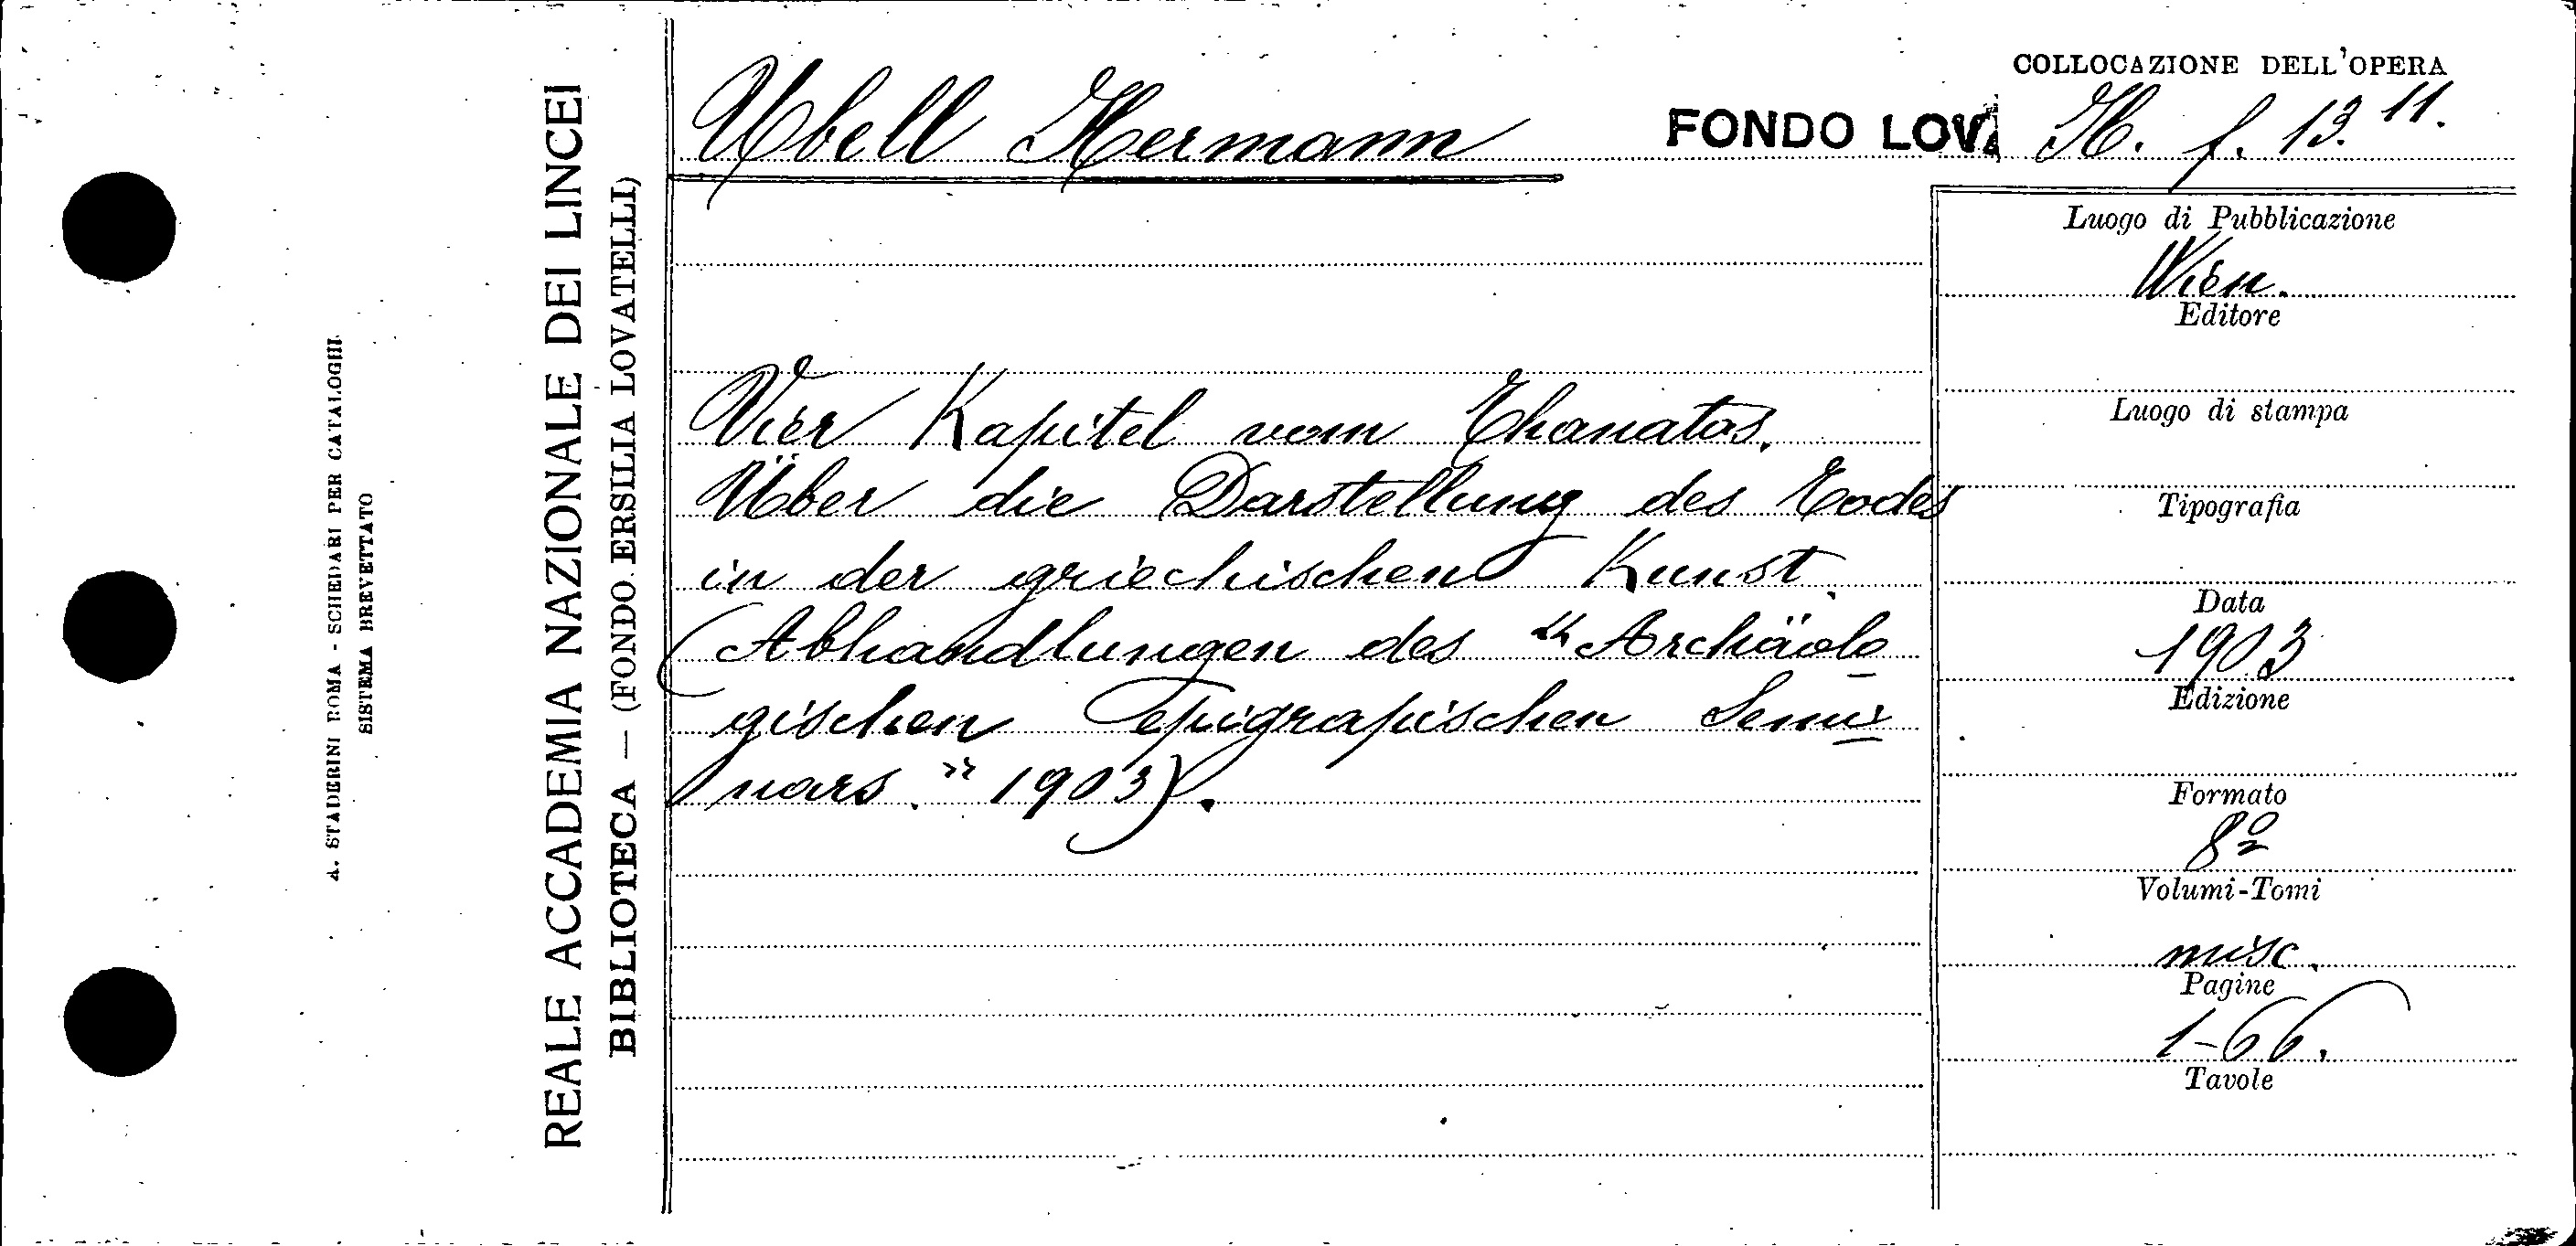 A. STADERINI ROMA - SCHEDARI PER CATALOGHI
SISTEMA BREVETTATO
REALE ACCADEMIA NAZIONALE DEI LINCEI
BIBLIOTECA — (FONDO ERSILIA LOVATELLI)
Ubell Hermann
FONDO LOV.
COLLOCAZIONE DELL'OPERA
H. f. 13. 11.
Vier Kapitel vom Thanatos.
Über die Darstellung des Todes
in der griechischen Kunst.
(Abhandlungen des "Archäolo
gischen epigrapischen Semi
nars." 1903).
Luogo di Pubblicazione
Wien.
Editore
Luogo di stampa
Tipografia
Data
1903
Edizione
Formato
8º
Volumi-Tomi
misc.
Pagine
1-66.
Tavole